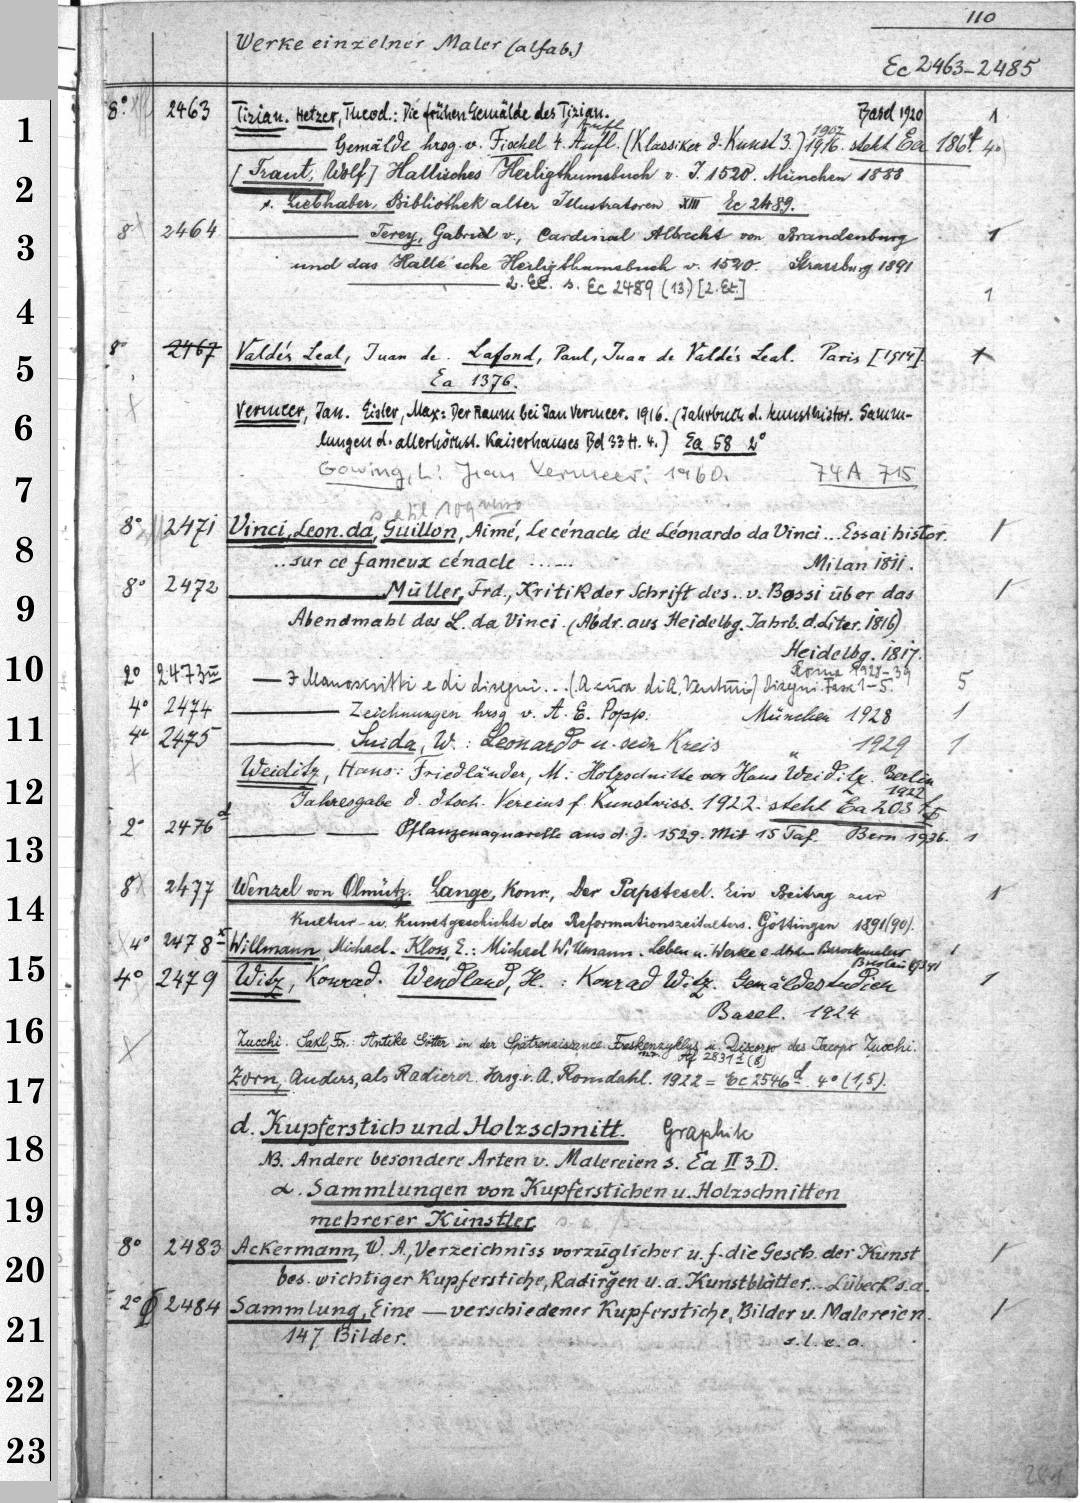 110
Werke einzelner Maler (alfab.)
Ec 2463-2485
8° 2463 Tizian. Hetzer, Theod.: Die frühen Gemälde des Tizian. Basel 1920 1
Gemälde hrsg. v. Fischel 4. Aufl. (Klassiker d. Kunst 3.) 1907 1916. steht Ea 1864 4°
[Traut, Wolf] Hallisches Heiligthumsbuch v. J. 1520. München 1888
s. Liebhaber, Bibliothek alter Illustratoren XIII Ec 2489.
8° 2464 Terey, Gabriel v., Cardinal Albrecht von Brandenburg 1
und das Halle'sche Heiligthumsbuch v. 1520. Strassburg 1891
2. Ex. s. Ec 2489 (13) [2. Ex.] 1
8° 2467 Valdés Leal, Juan de. Lafond, Paul, Juan de Valdés Leal. Paris [1914].
Ea 1376.
Vermeer, Jan. Eisler, Max: Der Raum bei Jan Vermeer. 1916. (Jahrbuch d. kunsthistor. Samm-
lungen d. allerhöchst. Kaiserhauses Bd 33 H. 4.) Ea 58 2°
Gowing, L: Jean Vermeer: 1960. 74 A 715
8° 2471 Vinci, Leon. da, Guillon, Aimé, Le cénacle de Léonardo da Vinci... Essai histor. 1
...sur ce fameux cénacle ...... Milan 1811.
8° 2472 Müller, Frd., Kritik der Schrift des.. v. Bossi über das 1
Abendmahl des L. da Vinci. (Abdr. aus Heidelbg. Jahrb. d. Liter. 1816)
Heidelbg. 1817.
Roma 1928-39
2° 2473 m — I Manoscritti e di disegni... (A cura di A. Venturi) Disegni Fasc 1-5. 5
4° 2474 Zeichnungen hrsg v. A. E. Popp. München 1928 1
4° 2475 Suida, W.: Leonardo u. sein Kreis " 1929 1
Weiditz, Hans: Friedländer, M.: Holzschnitte von Hans Weiditz. Berlin 1922
Jahresgabe d. dtsch. Vereins f. Kunstwiss. 1922. steht Ea 203
2° 2476 d Pflanzenaquarelle aus d. J. 1529. Mit 15 Taf. Bern 1936. 1
8° 2477 Wenzel von Olmütz. Lange, Konr., Der Papstesel. Ein Beitrag zur 1
Kultur- u. Kunstgeschichte des Reformationszeitalters. Göttingen 1891(90).
4° 2478 x Willmann, Michael. Kloss, E.: Michael Willmann. Leben u. Werke e. dtschen Barockmalers 1
Breslau
4° 2479 Witz, Konrad. Wendland, H.: Konrad Witz. Gemäldestudien 1
Basel. 1924
Zucchi. Saxl, Fr.: Antike Götter in der Spätrenaissance. Freskenzyklus u. Discorso des Jacopo Zucchi.
Af 2831 (8)
Zorn, Anders, als Radierer. Hrsg. v. A. Romdahl. 1922 = Ec 2546 d. 4° (1,5).
d. Kupferstich und Holzschnitt. Graphik
NB. Andere besondere Arten v. Malereien s. Ea II 3 D.
α. Sammlungen von Kupferstichen u. Holzschnitten
mehrerer Künstler
8° 2483 Ackermann, W. A., Verzeichniss vorzüglicher u. f. die Gesch. der Kunst 1
bes. wichtiger Kupferstiche, Radirgen u. a. Kunstblätter... Lübeck s.a.
2° 2484 Sammlung, Eine — verschiedener Kupferstiche, Bilder u. Malereien. 1
147 Bilder. s. l. e. a.
1
2
3
4
5
6
7
8
9
10
11
12
13
14
15
16
17
18
19
20
21
22
23